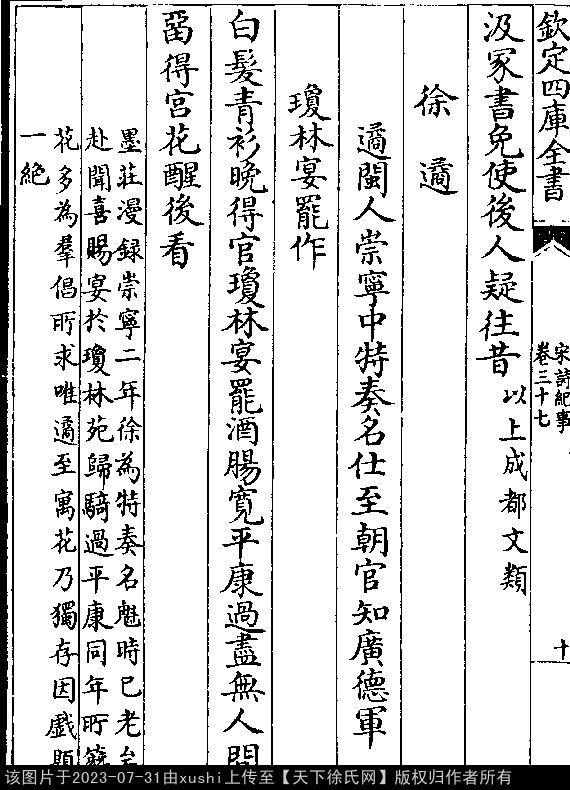 欽定四庫全書
宋詩紀事
卷三十七
十
汲冢書免使後人疑往昔以上成都文類
徐遹
遹閩人崇寧中特奏名仕至朝官知廣德軍
瓊林宴罷作
白髮青衫晚得官瓊林宴罷酒腸寬平康過盡無人問
留得宮花醒後看
墨莊漫錄崇寧二年徐為特奏名魁時已老
赴聞喜賜宴於瓊林苑歸騎過平康同年所簪
花多為羣倡所求唯遹至寓花乃獨存因戲題
一絕
该图片于2023-07-31由xushi上传至【天下徐氏网】版权归作者所有